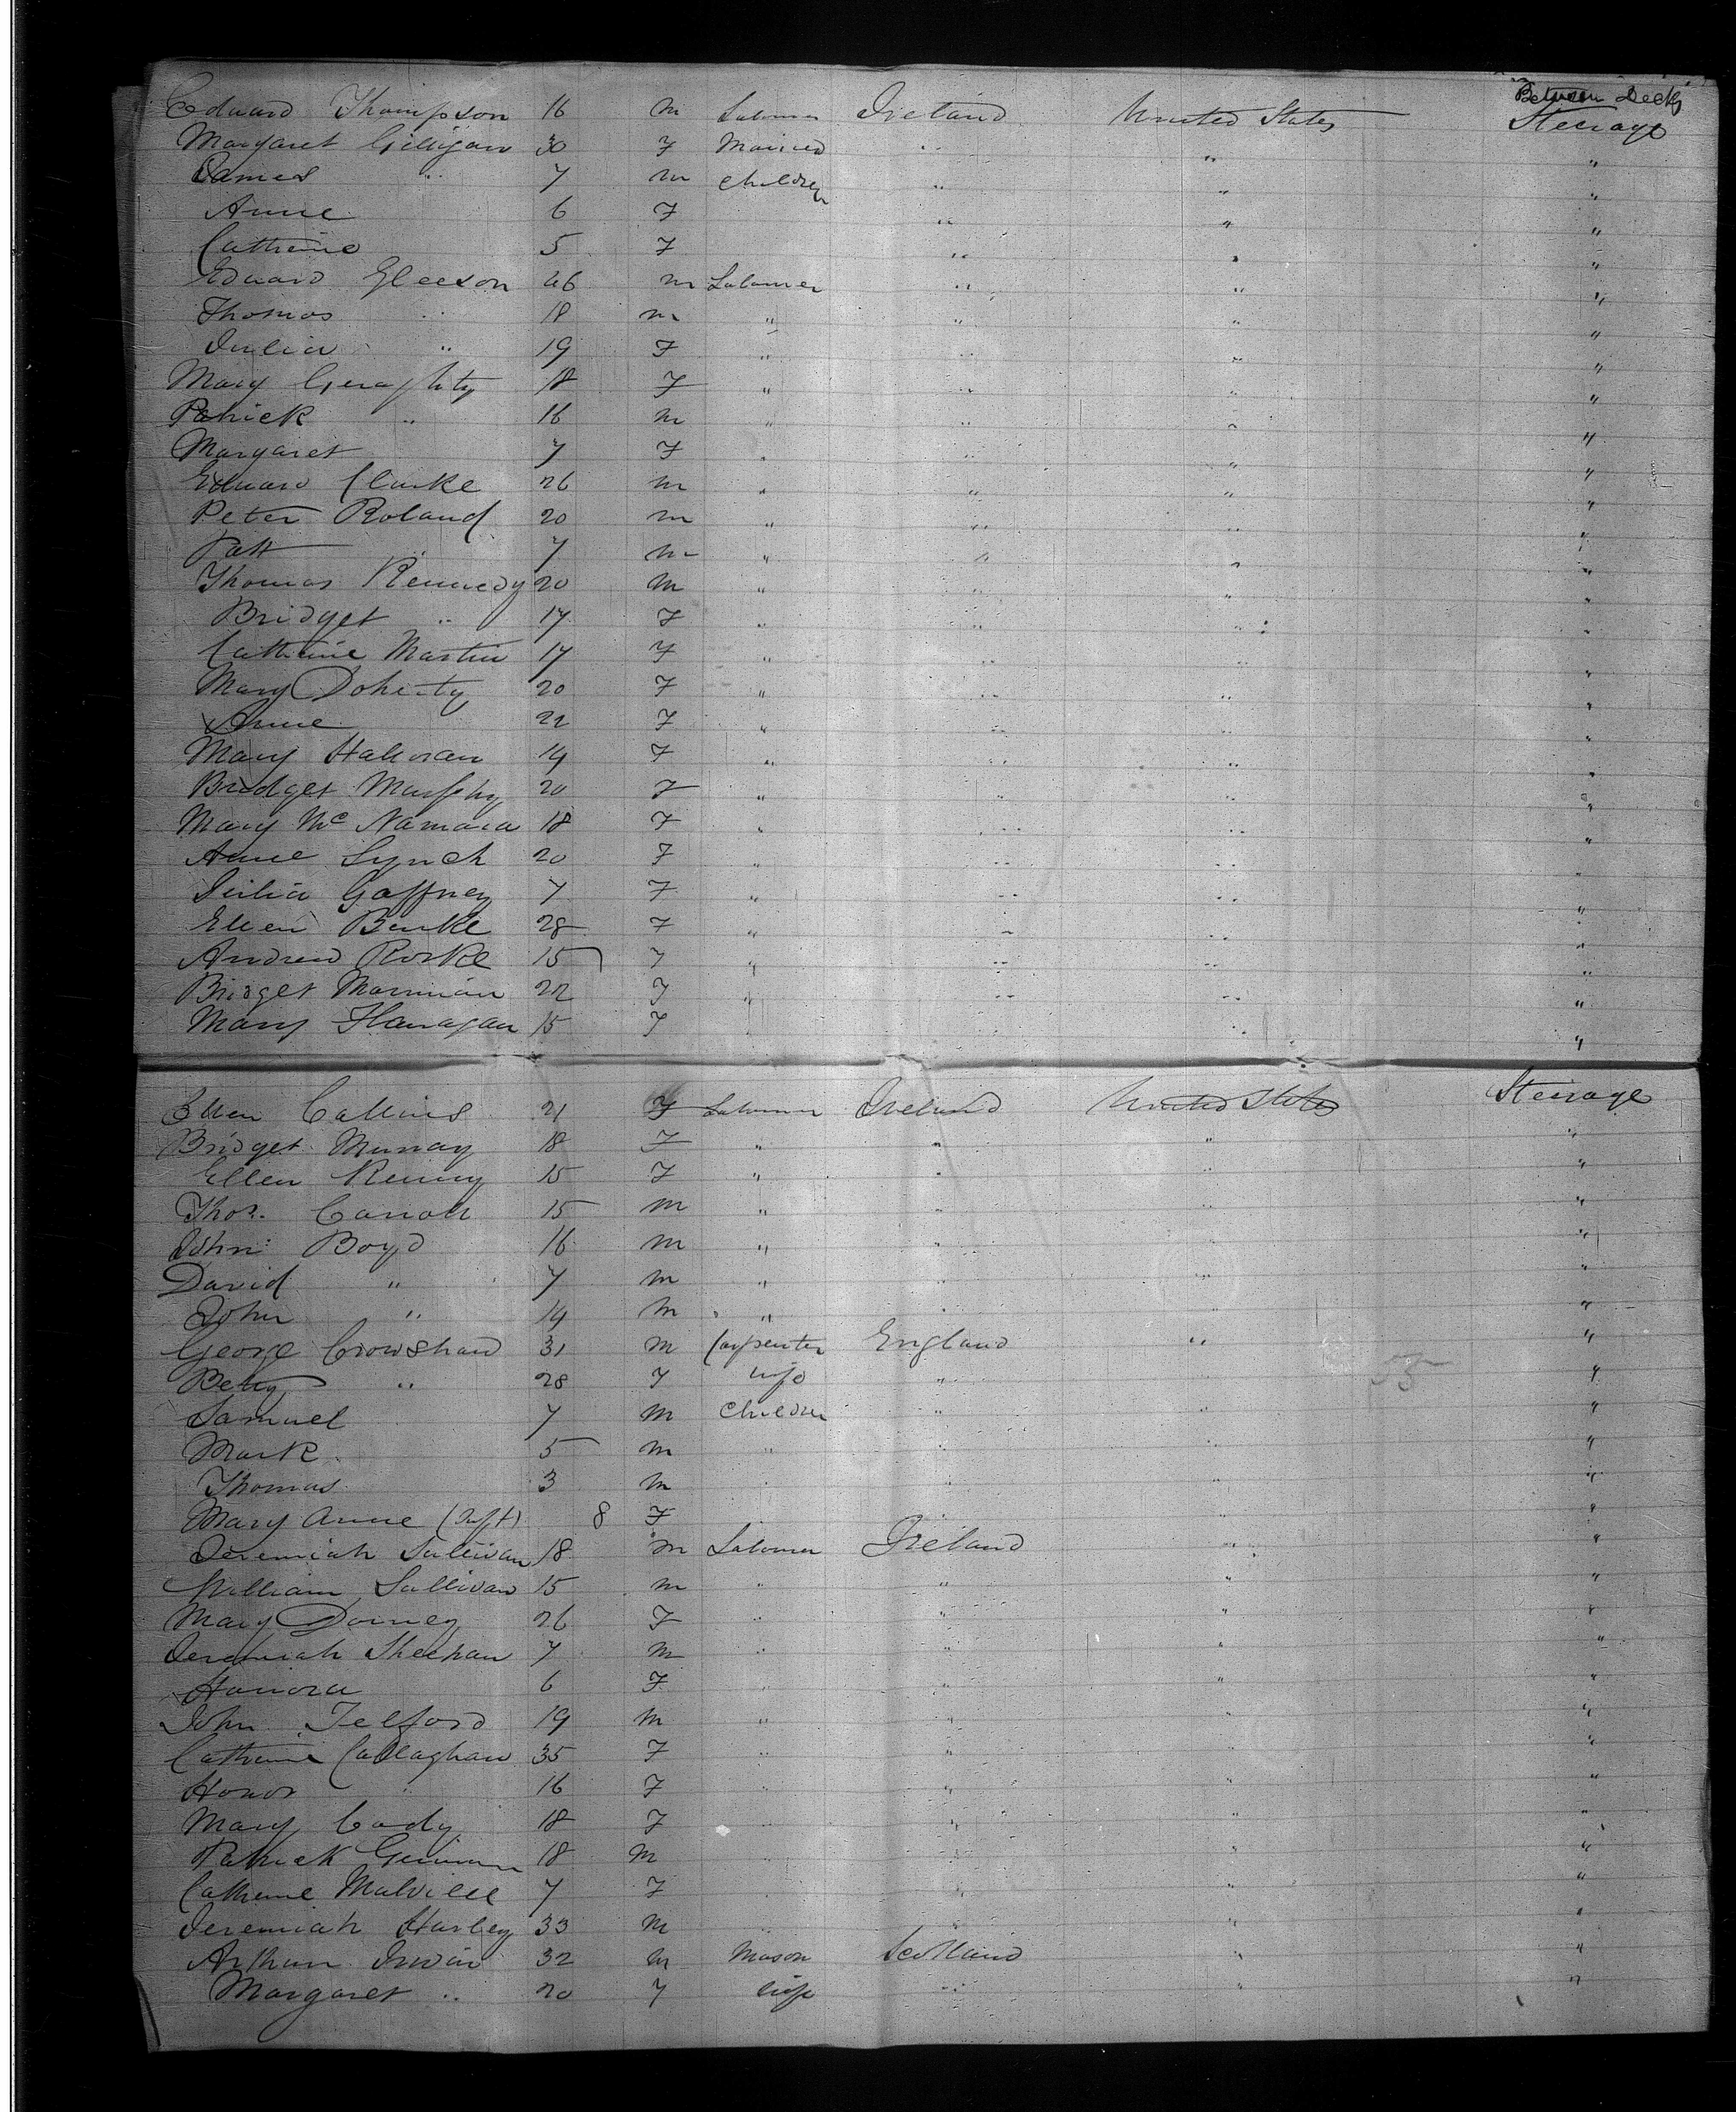 Between Decks
Edward Thompson 16 m Labourer Ireland United States Steerage
Margaret Gilligan 30 F Married " " "
James " 7 m Children " " "
Anne 6 F " " "
Catherine 5 F " " "
Edward Gleeson 46 m Labourer " " "
Thomas " 18 m " " " "
Julia " 19 F " " " "
Mary Geraghty 18 F " " " "
Patrick " 16 m " " " "
Margaret 7 F " " " "
Edward Clarke 26 m " " " "
Peter Roland 20 m " " " "
Patt " 7 m " " " "
Thomas Kennedy 20 m " " " "
Bridget " 17 F " " " "
Catherine Martin 17 F " " " "
Mary Doherty 20 F " " " "
Anne 22 F " " " "
Mary Halloran 19 F " " " "
Bridget Murphy 20 F " " " "
Mary McNamara 18 F " " " "
Anne Lynch 20 F " " " "
Julia Gaffney 7 F " " " "
Ellen Burke 28 F " " " "
Andrew Rorke 15 F " " " "
Bridget 22 F " " " "
Mary Flanagan 15 F " " " "
Ellen Collins 21 F Labourer Ireland United States Steerage
Bridget Murray 18 F " " " "
Ellen Kenny 15 F " " " "
Thos. Carroll 15 m " " " "
John Boyd 16 m " " " "
David " 7 m " " " "
John " 14 m " " " "
George Crowshaw 31 m Carpenter England " "
Betty " 28 F wife " " "
Samuel 7 m Children " " "
Mark 5 m " " " "
Thomas 3 m " " " "
Mary Anne (Inft) 8 F " "
Jeremiah Sullivan 18 m Labourer Ireland " "
William Sullivan 15 m " " " "
Mary 26 F " " " "
Jeremiah Sheehan 7 m " " " "
Honora 6 F " " " "
John Telford 19 m " " " "
Catherine Callaghan 35 F " " " "
Honor " 16 F " " " "
Mary Cody 18 F " " " "
Patrick 18 m " " " "
Catherine Malville 7 F " " " "
Jeremiah Hurley 33 m " " " "
Arthur Irwin 32 m Mason Scotland " "
Margaret " 20 F wife " " "